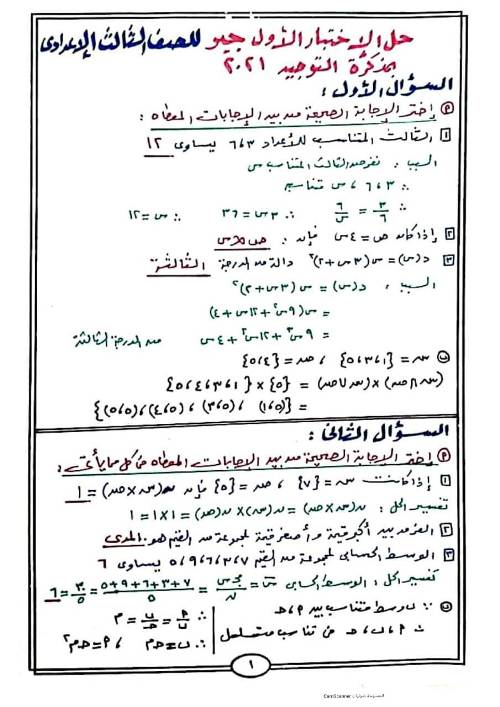 حل الاختبار الأول جبر للصف الثالث الإعدادى
بمذكرة التوجيه ٢٠٢١
السؤال الأول :
(P) إختر الإجابة الصحيحة من بين الإجابات المعطاه :
١ الثالث المتناسب للأعداد ٣ ، ٦ يساوى ١٢
السبب : نفرض الثالث المتناسب س
∴ ٣ ، ٦ ، س تناسب
∴ ٣/٦ = ٦/س ∴ ٣س = ٣٦ ∴ س = ١٢
٢ إذا كان ص = ٤س فإن : ص ∝ س
٣ د(س) = س(٣س + ٢)² دالة من الدرجة الثالثة
السبب : د(س) = س(٣س + ٢)²
= س(٩س² + ١٢س + ٤)
= ٩س³ + ١٢س² + ٤س من الدرجة الثالثة
(ب) س = {١ ، ٣ ، ٥} ، ص = {٤ ، ٥}
(س ∩ ص) × (س ∪ ص) = {٥} × {١ ، ٣ ، ٤ ، ٥}
= {(٥،١) ، (٥،٣) ، (٥،٤) ، (٥،٥)}
السؤال الثانى :
(P) إختر الإجابة الصحيحة من بين الإجابات المعطاه فى كل مما يأتى :
١ إذا كانت س = {٧} ، ص = {٥} فإن ن(س × ص) = ١
تفسير الحل : ن(س × ص) = ن(س) × ن(ص) = ١ × ١ = ١
٢ الفرق بين أكبر قيمة وأصغر قيمة لمجموعة من القيم هو : المدى
٣ الوسط الحسابى لمجموعة من القيم ٧ ، ٣ ، ٦ ، ٩ ، ٥ يساوى ٦
تفسير الحل : الوسط الحسابى س̄ = مجـ س/ن = ٧+٣+٦+٩+٥/٥ = ٣٠/٥ = ٦
(ب) ∵ ب وسط متناسب بين P ، حـ ∴ P/ب = ب/حـ = م
∴ P ، ب ، حـ فى تناسب متسلسل ∴ ب = حـ م ، P = حـ م²
١
CamScanner